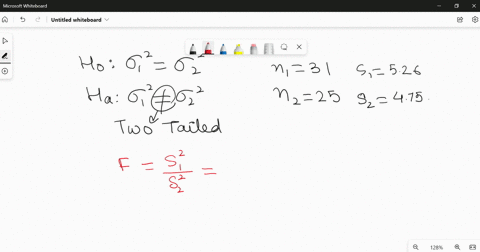 Microsoft Whiteboard
Untitled whiteboard
H₀: σ₁² = σ₂²
Ha: σ₁² ≠ σ₂²
Two Tailed
n₁ = 31 S₁ = 5.26
n₂ = 25 S₂ = 4.75
F = S₁²/S₂² =
128%